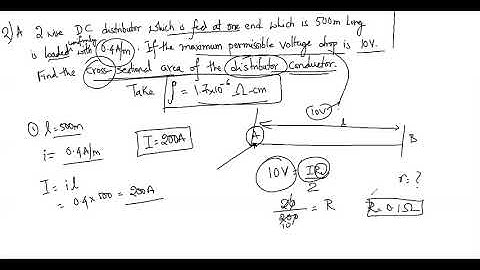 2) A 2 wire DC distributor which is fed at one end which is 500m long
is loaded with uniformly 0.4A/m. If the maximum permissible voltage drop is 10V.
Find the cross-sectional area of the distributor conductor.
Take ρ = 1.7×10⁻⁶ Ω-cm
① l=500m
i= 0.4A/m
I=200A
I = il
= 0.4×500 = 200A
10V
l
A
B
10V = IR/2
20/200 = R
10
r=?
R= 0.1Ω